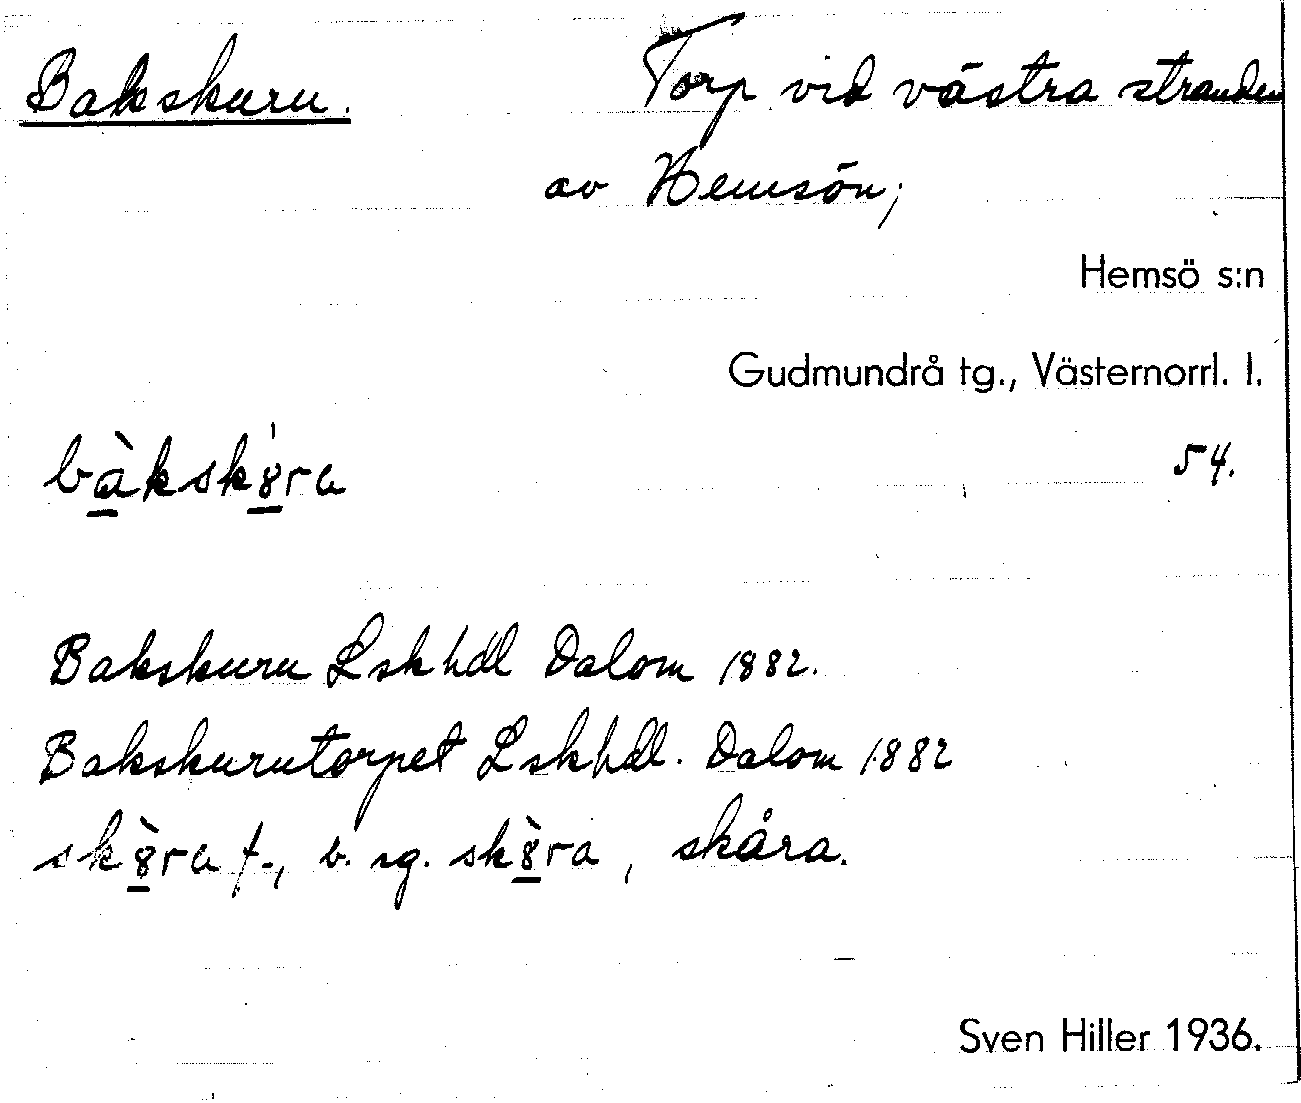 Bakskuru. Torp vid västra stranden
av Hemsön;
Hemsö s:n
Gudmundrå tg., Västernorrl. l.
bàkskȣ́ra 54.
Bakskuru Lskhdl Dalom 1882.
Bakskurutorpet Lskhdl. Dalom 1882
skȣ̀ra f., b. sg. skȣ̀ra, skåra.
Sven Hiller 1936.